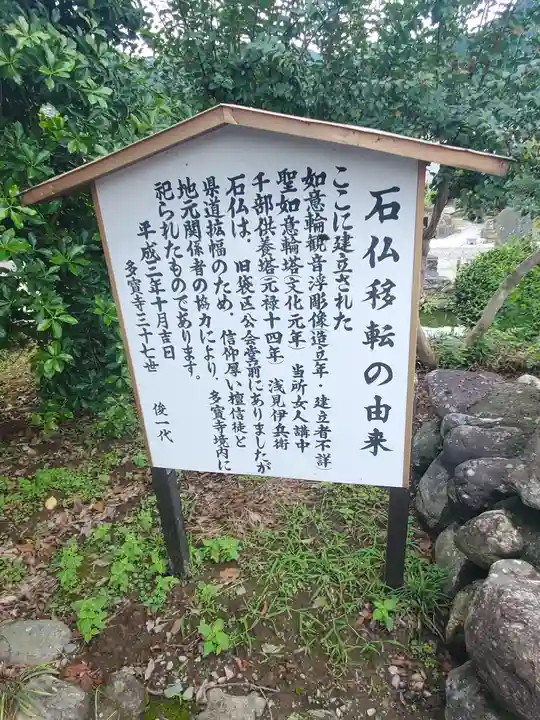 石仏移転の由来
ここに建立された
如意輪観音浮彫像造立年・建立者不詳
聖如意輪塔(文化元年) 当所女人講中
千部供養塔(元禄十四年) 浅見伊兵衛
石仏は、旧袋区公会堂前にありましたが
県道拡幅のため、信仰厚い檀信徒と
地元関係者の協力により、多宝寺境内に
祀られたものであります。
平成三年十月吉日
多寶寺三十七世 俊一代